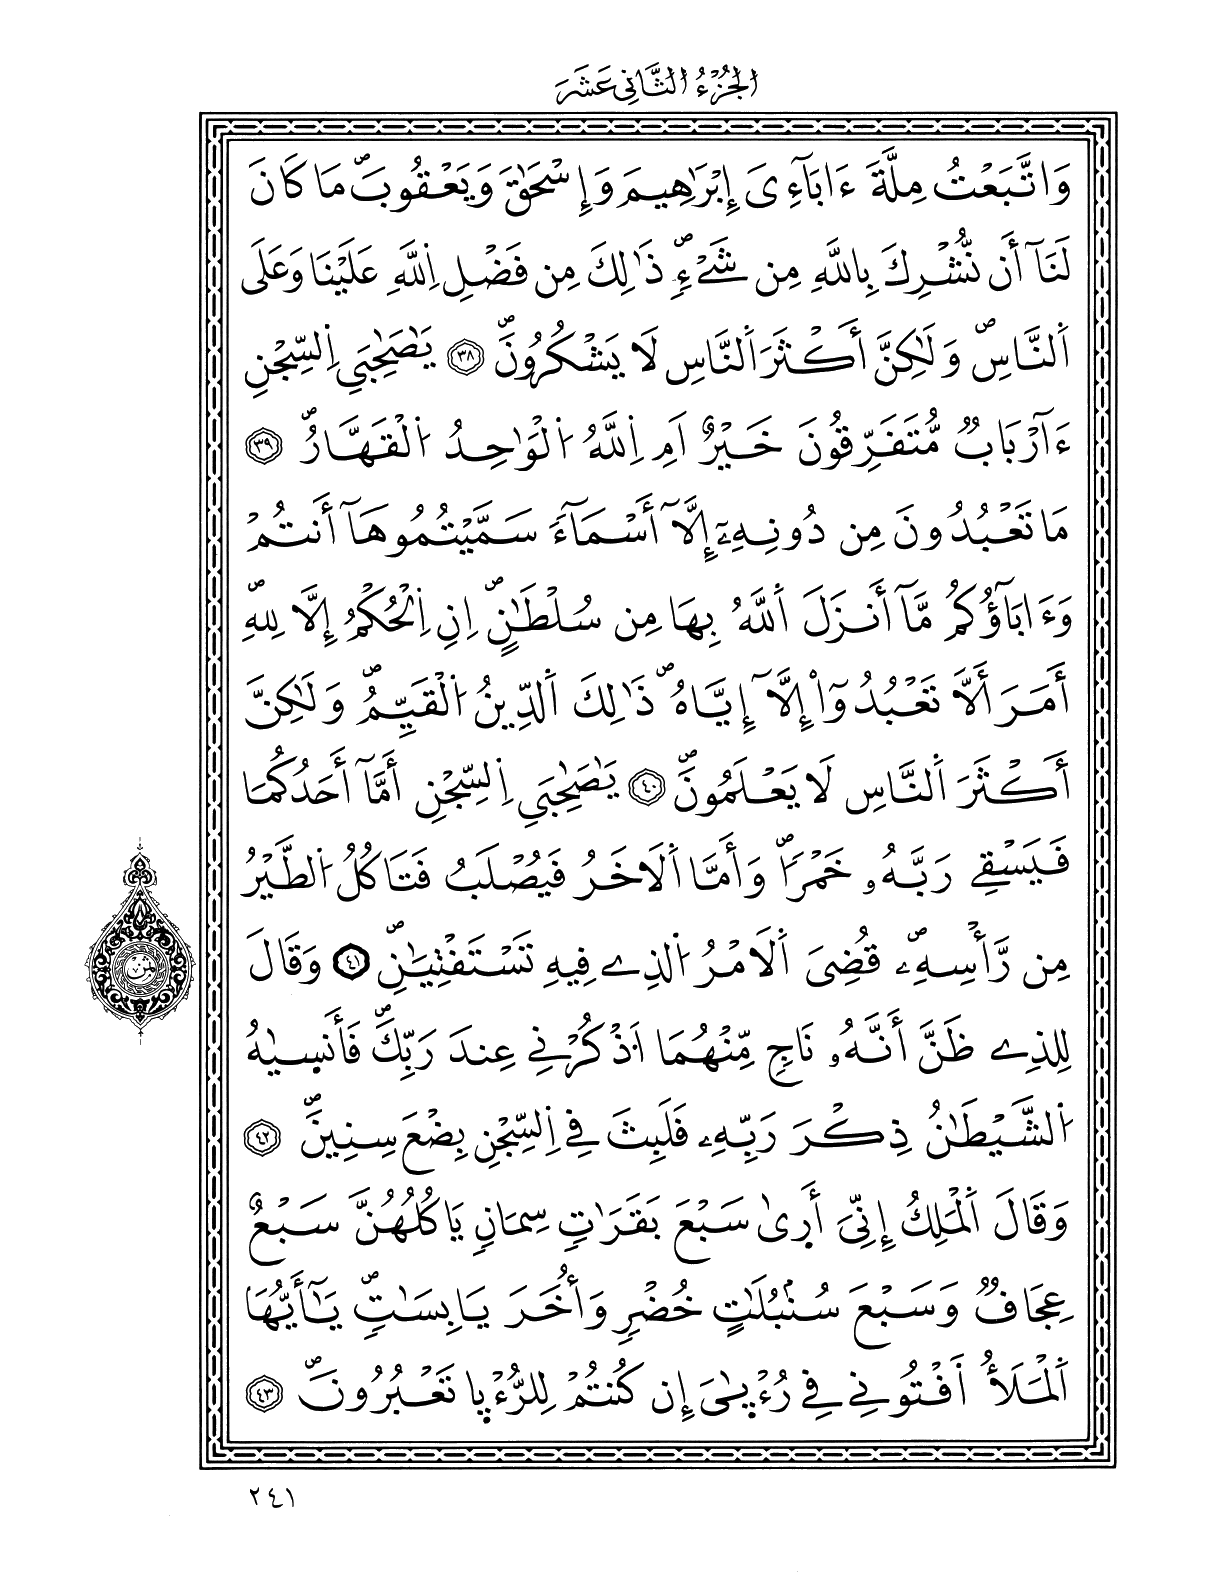 الجُزْءُ الثَّانِي عَشَرَ
وَاتَّبَعْتُ مِلَّةَ ءَابَآءِيَ إِبْرَٰهِيمَ وَإِسْحَٰقَ وَيَعْقُوبَۖ مَا كَانَ
لَنَآ أَن نُّشْرِكَ بِاللَّهِ مِن شَےْءٖۖ ذَٰلِكَ مِن فَضْلِ اِللَّهِ عَلَيْنَا وَعَلَى
اَلنَّاسِۖ وَلَٰكِنَّ أَكْثَرَ اَلنَّاسِ لَا يَشْكُرُونَۖ ٣٨ يَٰصَٰحِبَيِ اِلسِّجْنِ
ءَآرْبَابٞ مُّتَفَرِّقُونَ خَيْرٌ اَمِ اِللَّهُ اُلْوَٰحِدُ اُلْقَهَّارُۖ ٣٩
مَا تَعْبُدُونَ مِن دُونِهِۦٓ إِلَّآ أَسْمَآءَ سَمَّيْتُمُوهَآ أَنتُمْ
وَءَابَآؤُكُم مَّآ أَنزَلَ اَللَّهُ بِهَا مِن سُلْطَٰنٍۖ اِنِ اِلْحُكْمُ إِلَّا لِلهِۖ
أَمَرَ أَلَّا تَعْبُدُوٓاْ إِلَّآ إِيَّاهُۖ ذَٰلِكَ اَلدِّينُ اُلْقَيِّمُۖ وَلَٰكِنَّ
أَكْثَرَ اَلنَّاسِ لَا يَعْلَمُونَۖ ٤٠ يَٰصَٰحِبَيِ اِلسِّجْنِ أَمَّآ أَحَدُكُمَا
فَيَسْقِے رَبَّهُۥ خَمْراٗۖ وَأَمَّا اَلَاخَرُ فَيُصْلَبُ فَتَاكُلُ اُلطَّيْرُ
مِن رَّأْسِهِۦۖ قُضِيَ اَلَامْرُ اُلذِے فِيهِ تَسْتَفْتِيَٰنِۖ ٤١ وَقَالَ
لِلذِے ظَنَّ أَنَّهُۥ نَاجٖ مِّنْهُمَا اَذْكُرْنِے عِندَ رَبِّكَۖ فَأَنسِيٰهُ
اُلشَّيْطَٰنُ ذِكْرَ رَبِّهِۦ فَلَبِثَ فِے اِلسِّجْنِ بِضْعَ سِنِينَۖ ٤٢
وَقَالَ اَلْمَلِكُ إِنِّيَ أَرٜىٰ سَبْعَ بَقَرَٰتٖ سِمَانٖ يَاكُلُهُنَّ سَبْعٌ
عِجَافٞ وَسَبْعَ سُنۢبُلَٰتٍ خُضْرٖ وَأُخَرَ يَابِسَٰتٖۖ يَٰٓأَيُّهَا
اَلْمَلَأُ اَفْتُونِے فِے رُءْيٰٜيَ إِن كُنتُمْ لِلرُّءْيٜا تَعْبُرُونَۖ ٤٣
ثمن
٢٤١